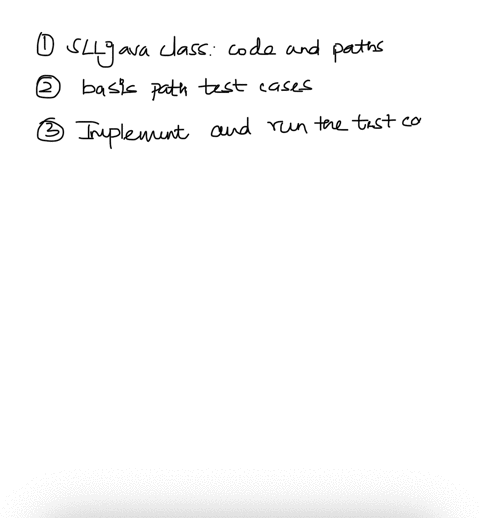 ① SLLJava class: code and paths
② basis path test cases
③ Implement and run the test ca